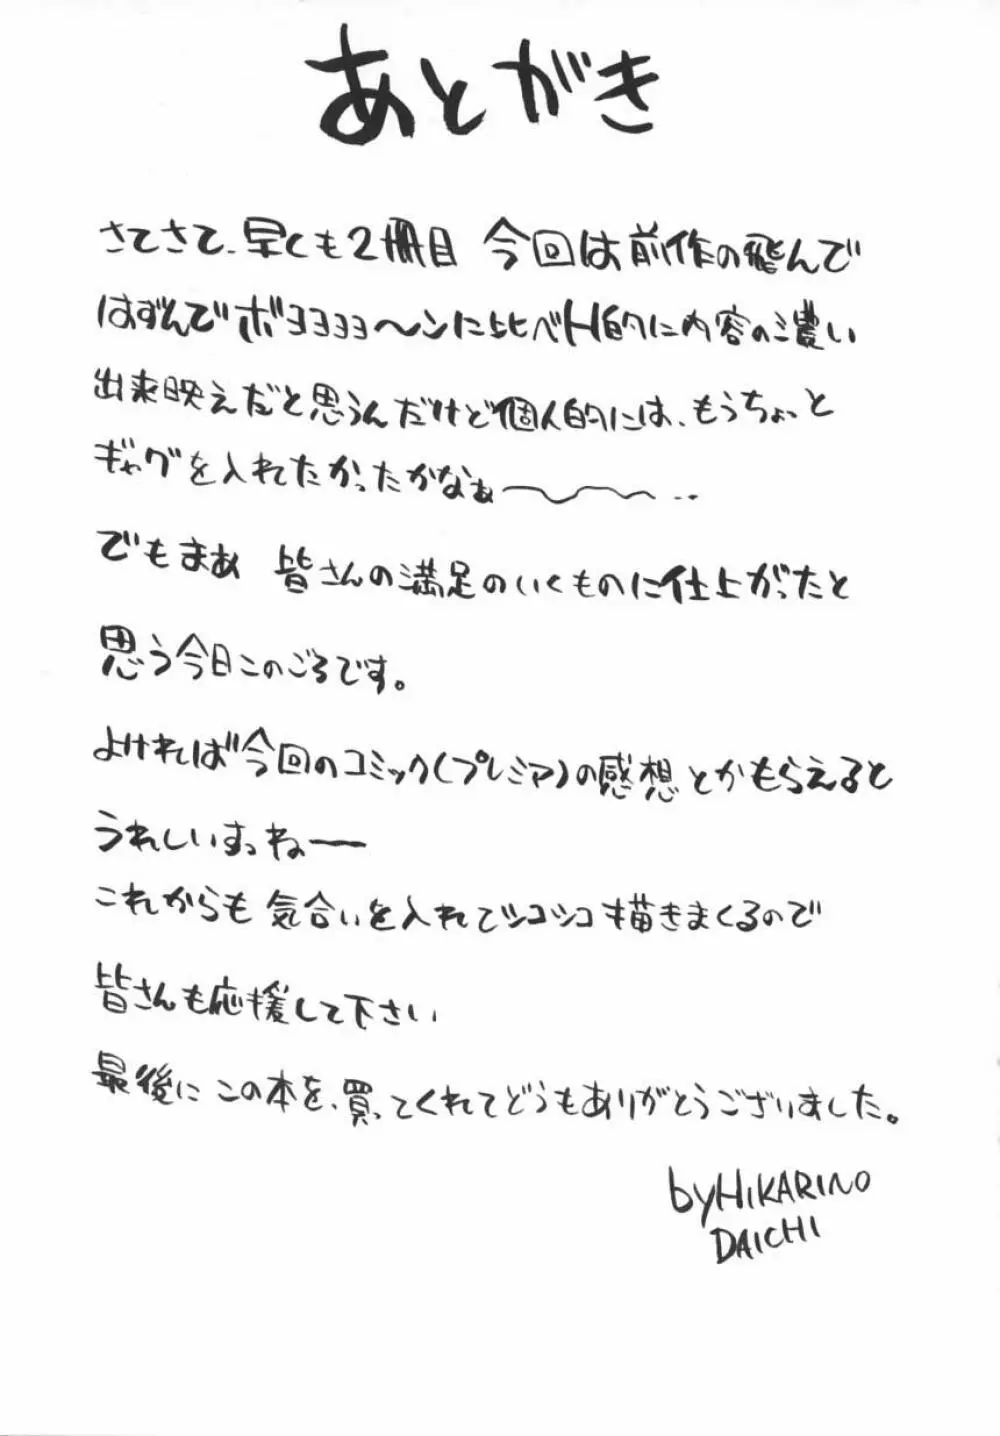 あとがき
さてさて、早くも2冊目 今回は前作の飛んで
はずんでボヨヨヨヨ〜ンに比べ的に内容の濃い
出来映えだと思うんだけど個人的には、もうちょっと
ギャグを入れたかったかなぁ〜〜〜‥
でもまあ 皆さんの満足のいくものに仕上がったと
思う今日このごろです。
よければ今回のコミック(プレミア)の感想とかもらえると
うれしいすっねー
これからも気合いを入れてシコシコ描きまくるので
皆さんも応援して下さい
最後に この本を、買ってくれてどうもありがとうございました。
by HIKARINO
DAICHI